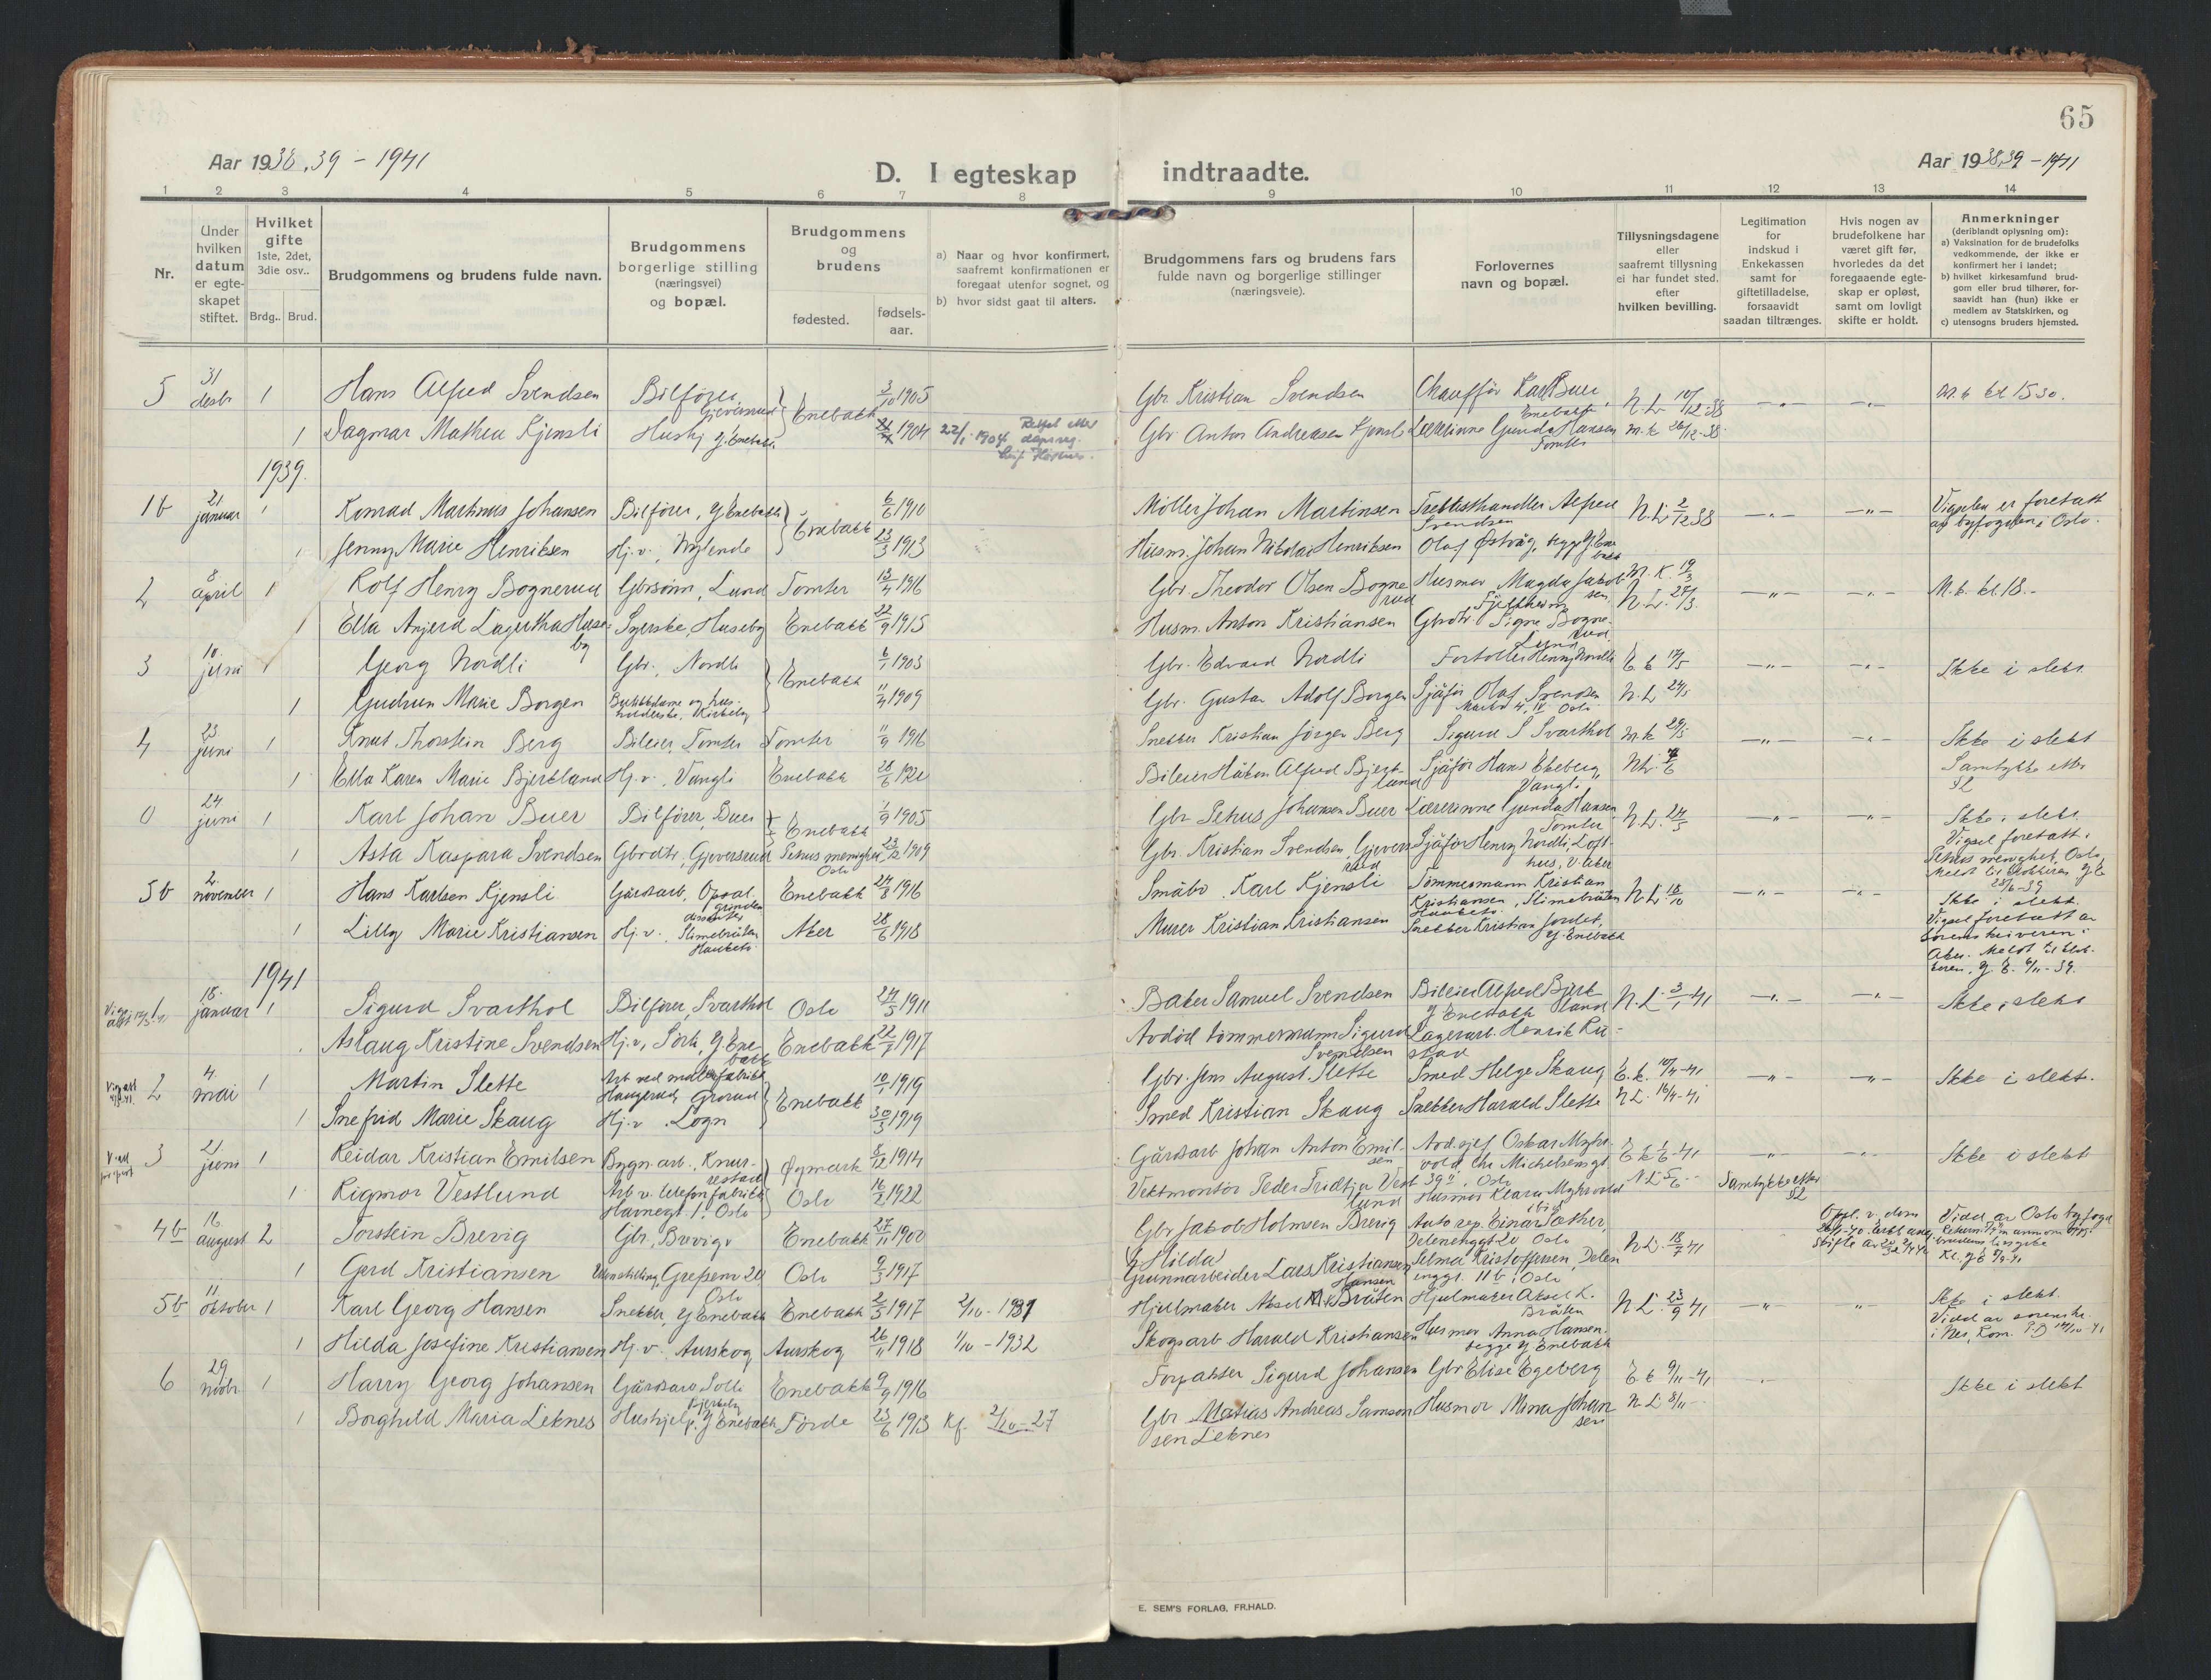 65
Aar 1938, 39 - 1941
D. I egteskap indtraadte.
Aar 1938, 39 - 1941
1 2 3 4 5 6 7 8 9 10 11 12 13 14
Nr.
Under hvilken datum er egte-skapet stiftet.
Hvilket gifte 1ste, 2det, 3die osv..
Brdg.. Brud.
Brudgommens og brudens fulde navn.
Brudgommens borgerlige stilling (næringsvei) og bopæl.
Brudgommens og brudens
fødested.
fødsels-aar.
a) Naar og hvor konfirmert, saafremt konfirmationen er foregaat utenfor sognet, og
b) hvor sidst gaat til alters.
Brudgommens fars og brudens fars fulde navn og borgerlige stillinger (næringsveie).
Forlovernes navn og bopæl.
Tillysningsdagene eller saafremt tillysning ei har fundet sted, efter hvilken bevilling.
Legitimation for indskud i Enkekassen samt for giftetilladelse, forsaavidt saadan tiltrænges.
Hvis nogen av brudefolkene har været gift før, hvorledes da det foregaaende egte-skap er opløst, samt om lovligt skifte er holdt.
Anmerkninger (deriblandt oplysning om):
a) Vaksination for de brudefolks vedkommende, der ikke er konfirmert her i landet;
b) hvilket kirkesamfund brud-gom eller brud tilhører, for-saavidt han (hun) ikke er medlem av Statskirken, og
c) utensogns bruders hjemsted.
5 31 desbr 1 Hans Alfred Svendsen Bilfører Gjeversrud Enebakk 3/10 1905 Gbr Kristian Svendsen Chauffør Karl Buer Enebakk N.L. 10/12-38 -"- -"- M.b kl 15 30.
1 Dagmar Mathea Kjensli Hushj Y. Enebakk 1904 22/1 1904 Rettet etter Gbr. Anton Andreasen Kjensli Lærerinne Gunda Hansen Tomter M.k 26/12-38
1939.
1b 21 januar 1 Konrad Martinus Johansen Bilfører, Y Enebakk Enebakk 6/6 1910 Møller Johan Martinsen Trelasthandler Alfred Svendsen N.L. 2/12 38 -"- -"- Vigselen er foretatt av byfogden i Oslo.
1 Jenny Marie Henriksen Hj.v., Nylende 23/3 1913 Husm. Johan Nikolai Henriksen Olaf Østvåg, begge Y. Ene bakk
2 8 april 1 Rolf Henry Bognerud Gbrsønn, Lund Tomter 13/4 1916 Gbr. Theodor Olsen Bogne rud Husmor Magda Jakob sen Fjellheim M.K. 19/3 -"- -"- M.b. kl. 18.-
1 Ella Anjerd Lagertha Huse by Syerske, Huseby Enebakk 22/9 1915 Husm. Anton Kristiansen Gbrdtr. Signe Bogne-rud Lund N.L. 27/3.
3 10. juni 1 Georg Nordli Gbr., Nordli Enebakk 6/1 1903 Gbr. Edvard Nordli Fortoller Henry Nordli E k 14/5 -"- -"- Ikke i slekt
1 Gudrun Marie Borgen Butikkdame og hus-holderske, Kirkeby 11/4 1909 Gbr. Gustav Adolf Borgen Sjåfør Olaf Svendsen Oslo N.L 24/5
4 23 juni 1 Knut Thorstein Berg Bileier Tomter Tomter 11/9 1916 Snekker Kristian Jørgen Berg Sigurd S Svarthol M.k 29/5 -"- -"- Ikke i slekt
1 Ella Karen Marie Bjerkland Hj.v., Vangli Enebakk 28/6 Bileier Håkon Alfred Bjerk-land Sjåfør Hans Ekeberg, Vangli Samtykke etter
0 24 juni 1 Karl Johan Buer Bilfører, Buer Enebakk 1/9 1905 Gbr Petrus Johansen Buer Lærerinne Gunda Hansen Tomter N.L. 24/5 -"- -"- Ikke i slekt
1 Asta Kaspara Svendsen Gbrdtr, Gjeversrud Petrus menighet Oslo 23/12 1909 Gbr. Kristian Svendsen, Gjevers rud Sjåfør Henry Nordli, Loft-hus, V. Aker Vigsel foretatt i Petrus menighet, Oslo, Meldt til klokkeren Y.E 28/6-39
5b 2. november 1 Hans Karlsen Kjensli Gårdsarb, Opsal Enebakk 24/8 1916 Småbr. Karl Kjensli Tømmermann Kristian Kristiansen, Slimebråten Hauketo N.L 18/10 -"- -"- Ikke i slekt.
1 Lilly Marie Kristiansen Hj.v. Slimebråten Hauketo Aker 28/6 1918 Murer Kristian Kristiansen Snekker Kristian Jordet, Y. Enebakk Vigsel foretatt av sorenskriveren i Aker. Meldt til klok-keren, Y. E. 6/11-39.
1941
1 18. januar 1 Sigurd Svarthol Bilfører, Svarthol Oslo 24/5 1911 Baker Samuel Svendsen Bileier Alfred Bjerk-land Y Enebakk N.L. 3/1-41 -"- -"- Ikke i slekt
Aslaug Kristine Svendsen Hj.v, Sørli, Y. Ene-bakk Enebakk 1917 Avdød tømmermann Sigurd Svendsen Lagerarb. Henrik Ru-stad
2 4. mai 1 Martin Slette Arb ved malerfabrikk Haugerud, Grorud Enebakk 10/1 1919 Gbr. Jens August Slette Smed Helge Skaug E.k. 10/4-41 -"- -"- Ikke i slekt.
1 Snefrid Marie Skaug Hj.v. Logn 30/3 1919 Smed Kristian Skaug Snekker Harald Slette N.L. 16/4-41
3 21 juni 1 Reidar Kristian Emilsen Bygn.arb., Knur-restad Øymark 8/12 1914 Gårdsarb Johan Anton Emil-sen Avd.sjef Oskar Myhr-vold, Chr Michelsensgt 39 II, Oslo E k 6/6-41 -"- -"- Ikke i slekt
1 Rigmor Vestlund Arb v. telefonfabrikk Havnegt. 1, Oslo Oslo 16/2 1922 Vektmontør Peder Fridtjov Vest lund Husmor Klara Myhrvold ibid N.L 5/6 -- Samtykke etter
4b 16. august 2 Torstein Brevig Gbr., Brevig Enebakk 27/11 1900 Gbr Jakob Holmsen Brevig Auto rep. Einar Sæther, Delenenggt 20 Oslo N.L. 18/7 41 Viet av Oslo byfogd
1 Gerd Kristiansen Uten stilling, Grefsenv 20 Oslo Oslo 9/3 1917 (Hilda) Grunnarbeider Lars Kristiansen Selma Kristoffersen, Delen enggt. 11 b, Oslo
5b 11 oktober 1 Karl Georg Hansen Snekker, Y Enebakk Enebakk 2/3 1917 2/10 - 1931 Hjulmaker Aksel Hansen Bråten Hjulmaker Aksel K. Bråten N L. 23/9 41 -"- " Ikke i slekt.
1 Hilda Josefine Kristiansen Hj.v. Aurskog Aurskog 26/11 1918 1/10 - 1932 Skogsarb Harald Kristiansen Husmor Anna Hansen begge Y Enebakk Viet av sorenskr. i Nes, Rom.
6 29 novbr 1 Harry Georg Johansen Gårdsarb, Solli Enebakk 9/9 1916 Forpakter Sigurd Johansen Gbr Elise Egeberg E k 9/11-41 Ikke i slekt
1 Borghild Maria Leknes Hushjelp. Y Enebakk Førde 23/6 1913 Kf. 2/10-27 Gbr Matias Andreas Samson sen Leknes Husmor Mina Johan sen N L 8/11 -
E. SEM'S FORLAG, FR.HALD.